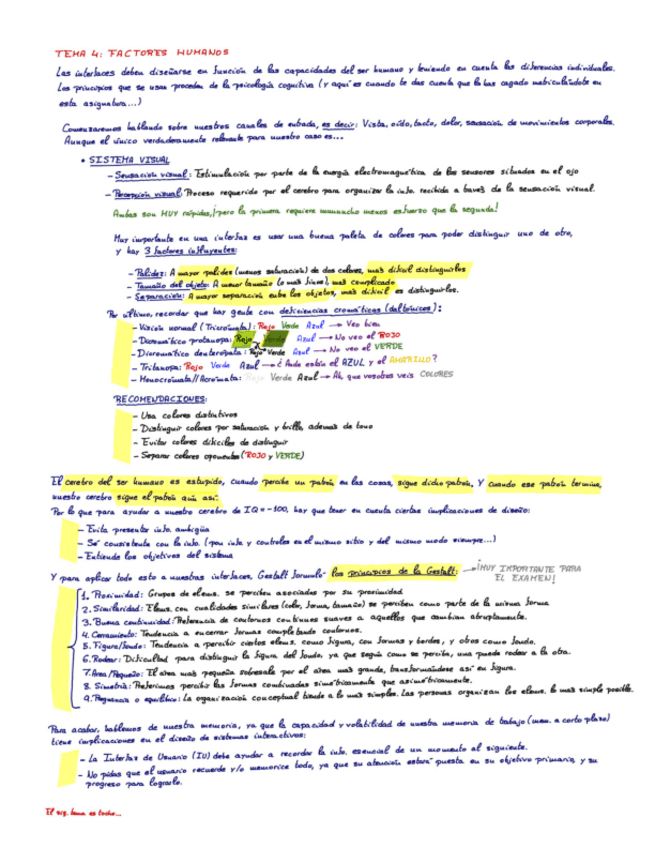 TEMA 4: FACTORES HUMANOS
Las interfaces deben diseñarse en función de las capacidades del ser humano y teniendo en cuenta las diferencias individuales.
Los principios que se usan proceden de la psicología cognitiva (y aquí es cuando te das cuenta que la has cagado matriculándote en
esta asignatura...)
Comenzaremos hablando sobre nuestros canales de entrada, es decir: Vista, oído, tacto, dolor, sensación de movimientos corporales.
Aunque el único verdaderamente relevante para nuestro caso es...
• SISTEMA VISUAL
- Sensación visual: Estimulación por parte de la energía electromagnética de los sensores situados en el ojo
- Percepción visual: Proceso requerido por el cerebro para organizar la info. recibida a través de la sensación visual.
Ambas son MUY rápidas, ¡pero la primera requiere menos esfuerzo que la segunda!
Muy importante en una interfaz es usar una buena paleta de colores para poder distinguir uno de otro,
y hay 3 factores influyentes:
- Palidez: A mayor palidez (menos saturación) de dos colores, más difícil distinguirlos
- Tamaño del objeto: A menor tamaño (o más finos), más complicado
- Separación: A mayor separación entre los objetos, más difícil es distinguirlos.
Por último, recordar que hay gente con deficiencias cromáticas (daltónicos):
- Visión normal (Tricrómata): Rojo Verde Azul → Veo bien
- Dicromático protanopa: Rojo Verde Azul → No veo el ROJO
- Dicromático deuteropata: Rojo Verde Azul → No veo el VERDE
- Tritanopa: Rojo Verde Azul → ¿Ande están el AZUL y el AMARILLO?
- Monocrómata//Acrómata: Rojo Verde Azul → Ah, que vosotros veis COLORES
RECOMENDACIONES:
- Usa colores distintivos
- Distinguir colores por saturación y brillo, además de tono
- Evitar colores difíciles de distinguir
- Separar colores oponentes (ROJO y VERDE)
El cerebro del ser humano es estúpido, cuando percibe un patrón en las cosas, sigue dicho patrón. Y cuando ese patrón termina,
nuestro cerebro sigue el patrón aún así.
Por lo que para ayudar a nuestro cerebro de IQ = -100, hay que tener en cuenta ciertas implicaciones de diseño:
- Evita presentar info. ambigua
- Sé consistente con la info. (pon info. y controles en el mismo sitio y del mismo modo siempre...)
- Entiende los objetivos del sistema
Y para aplicar todo esto a nuestras interfaces, Gestalt formuló los principios de la Gestalt: → ¡MUY IMPORTANTE PARA
EL EXAMEN!
1. Proximidad: Grupos de elems. se perciben asociados por su proximidad
2. Similaridad: Elems. con cualidades similares (color, forma, tamaño) se perciben como parte de la misma forma
3. Buena continuidad: Preferencia de contornos continuos suaves a aquellos que cambian abruptamente.
4. Cerramiento: Tendencia a encerrar formas completando contornos.
5. Figura/fondo: Tendencia a percibir ciertos elems. como figura, con formas y bordes, y otros como fondo.
6. Rodear: Dificultad para distinguir la figura del fondo, ya que según como se perciba, una puede rodear a la otra.
7. Área/Pequeño: El área más pequeña sobresale por el área más grande, transformándose así en figura.
8. Simetría: Preferimos percibir las formas combinadas simétricamente que asimétricamente.
9. Pregnancia o equilibrio: La organización conceptual tiende a lo más simples. Las personas organizan los elems. lo más simple posible.
Para acabar, hablemos de nuestra memoria, ya que la capacidad y volatilidad de nuestra memoria de trabajo (mem. a corto plazo)
tiene implicaciones en el diseño de sistemas interactivos:
- La Interfaz de Usuario (IU) debe ayudar a recordar la info. esencial de un momento al siguiente.
- No pidas que el usuario recuerde y/o memorice todo, ya que su atención estará puesta en su objetivo primario, y su
progreso para lograrlo.
El sig. tema es tocho...